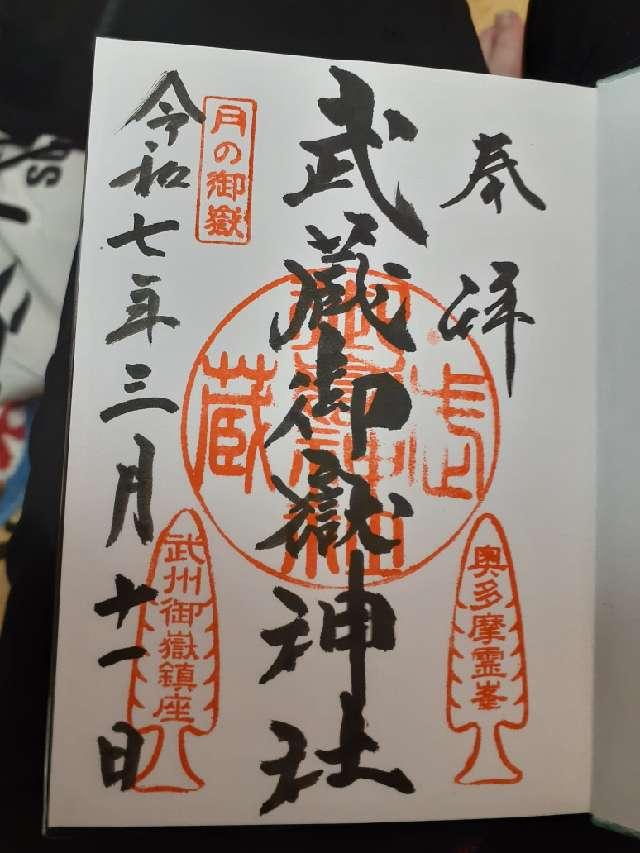 奉拝
奥多摩霊峯
武蔵御嶽神社
武蔵
月の御嶽
令和七年三月十一日
武州御嶽鎮座